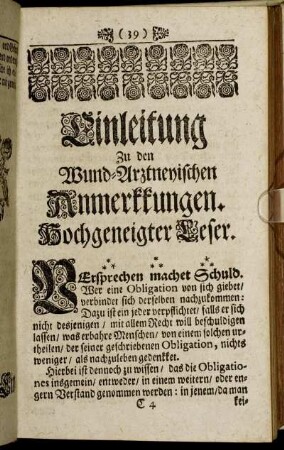 (39)
Einleitung
Zu den
Wund-Arztneyischen
Anmerkkungen.
Hochgeneigter Leser.
VErsprechen machet Schuld.
Wer eine Obligation von sich giebet/
verbindet sich derselben nachzukommen:
Dazu ist ein jeder verpflichtet/ falls er sich
nicht desjenigen / mit allem Recht will beschuldigen
lassen/ was erbahre Menschen/ von einem solchen ur-
theilen/ der seiner geschriebenen Obligation, nichts
weniger/ als nachzuleben gedenkket.
Hierbei ist dennoch zu wissen / das die Obligatio-
nes insgemein/ entweder/ in einem weitern/ oder en-
gern Verstand genommen werden: in jenem/da man
C 4
kei-